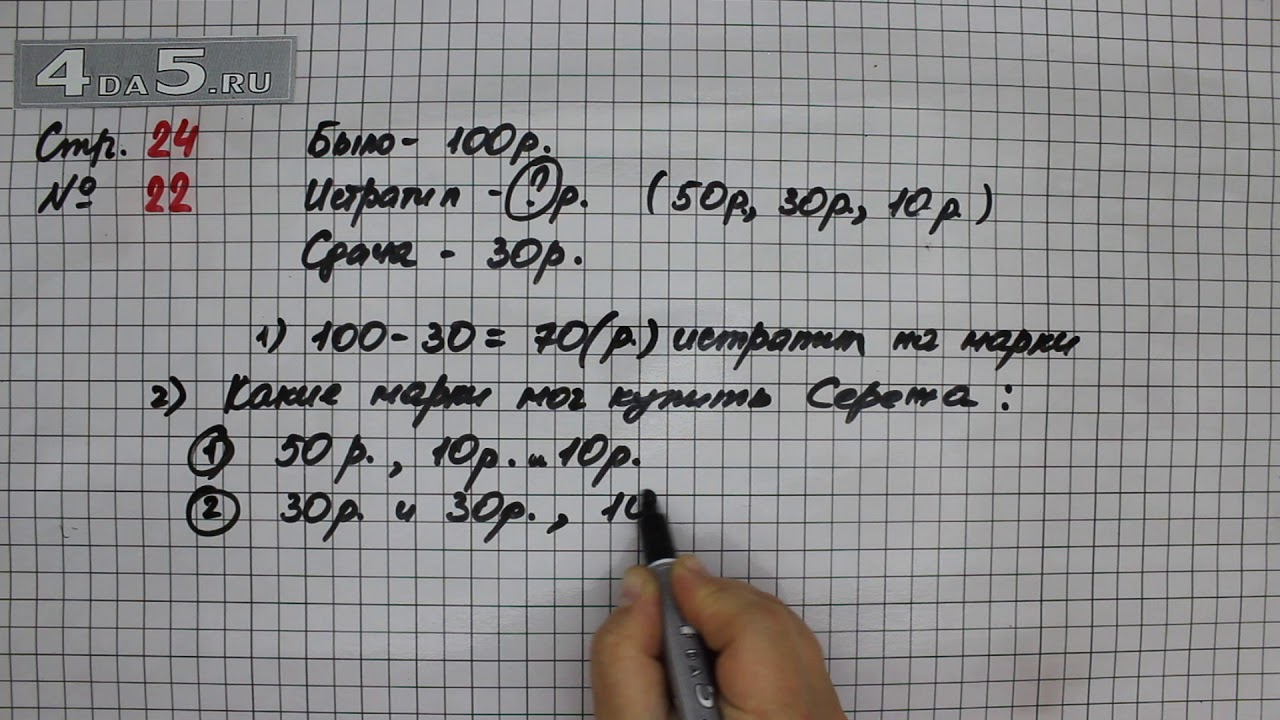 4DA5.RU
Стр. 24
№ 22
Было - 100р.
Истратил - ? р. (50р., 30р., 10р.)
Сдача - 30р.
1) 100 - 30 = 70(р.) истратил на марки
2) Какие марки мог купить Сережа:
1 50р., 10р. и 10р.
2 30р. и 30р., 10
DA5